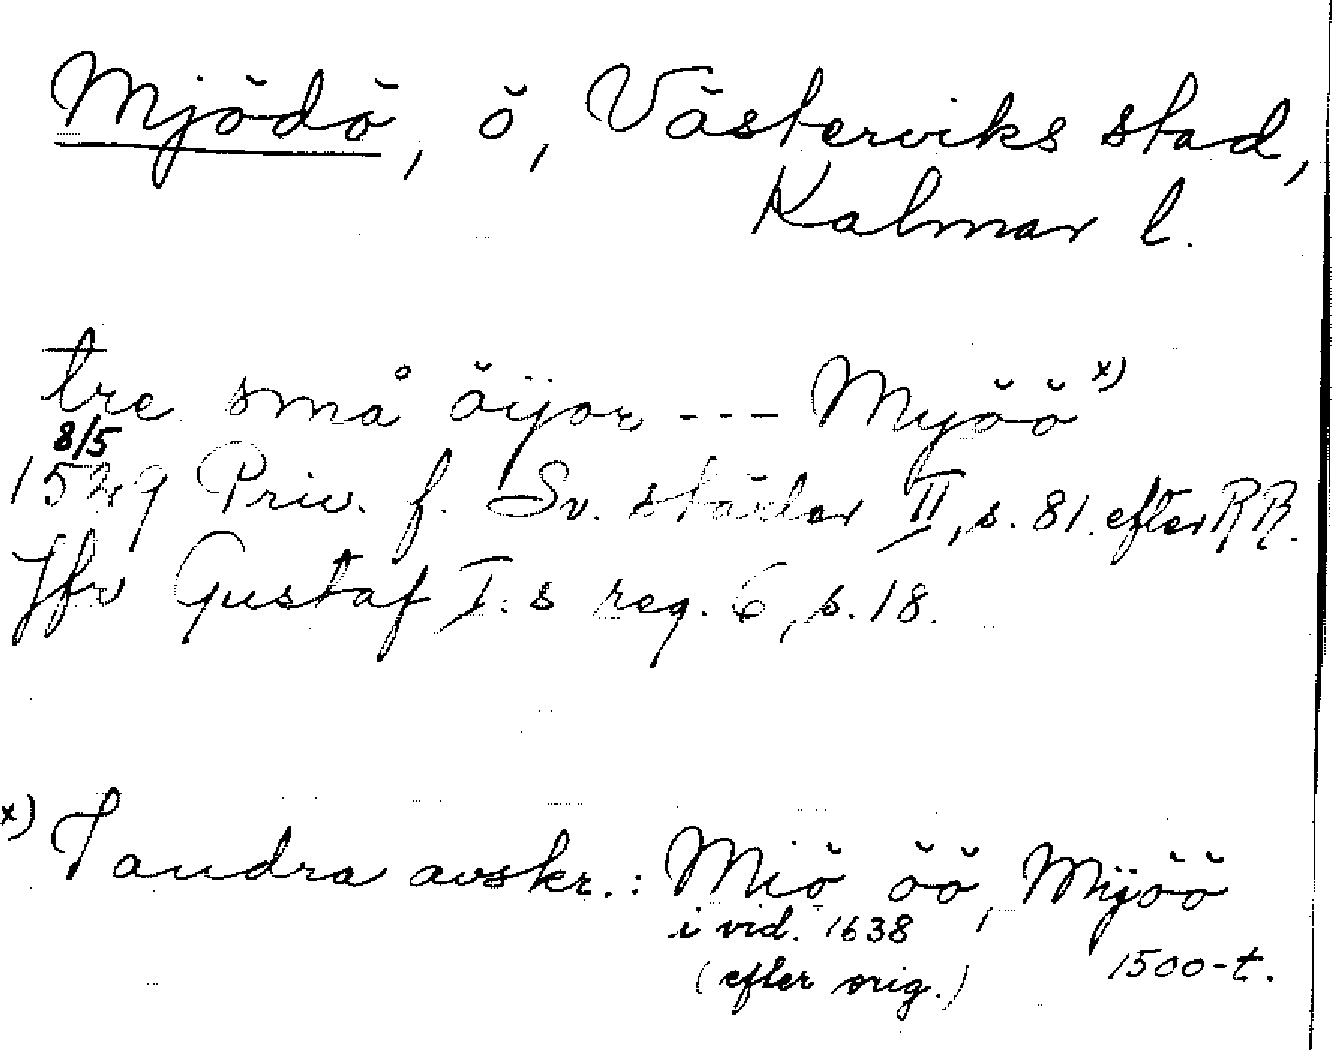 Mjödö, ö, Västerviks stad,
Kalmar l.
tre små öijor --- Myöö x)
8/5
1529 Priv. f. Sv. städer II, s. 81. efter RR.
Jfr Gustaf I:s reg. 6, s. 18.
x) I andra avskr.: Miö öö, Mijöö
i vid. 1638
(efter orig.) 1500-t.